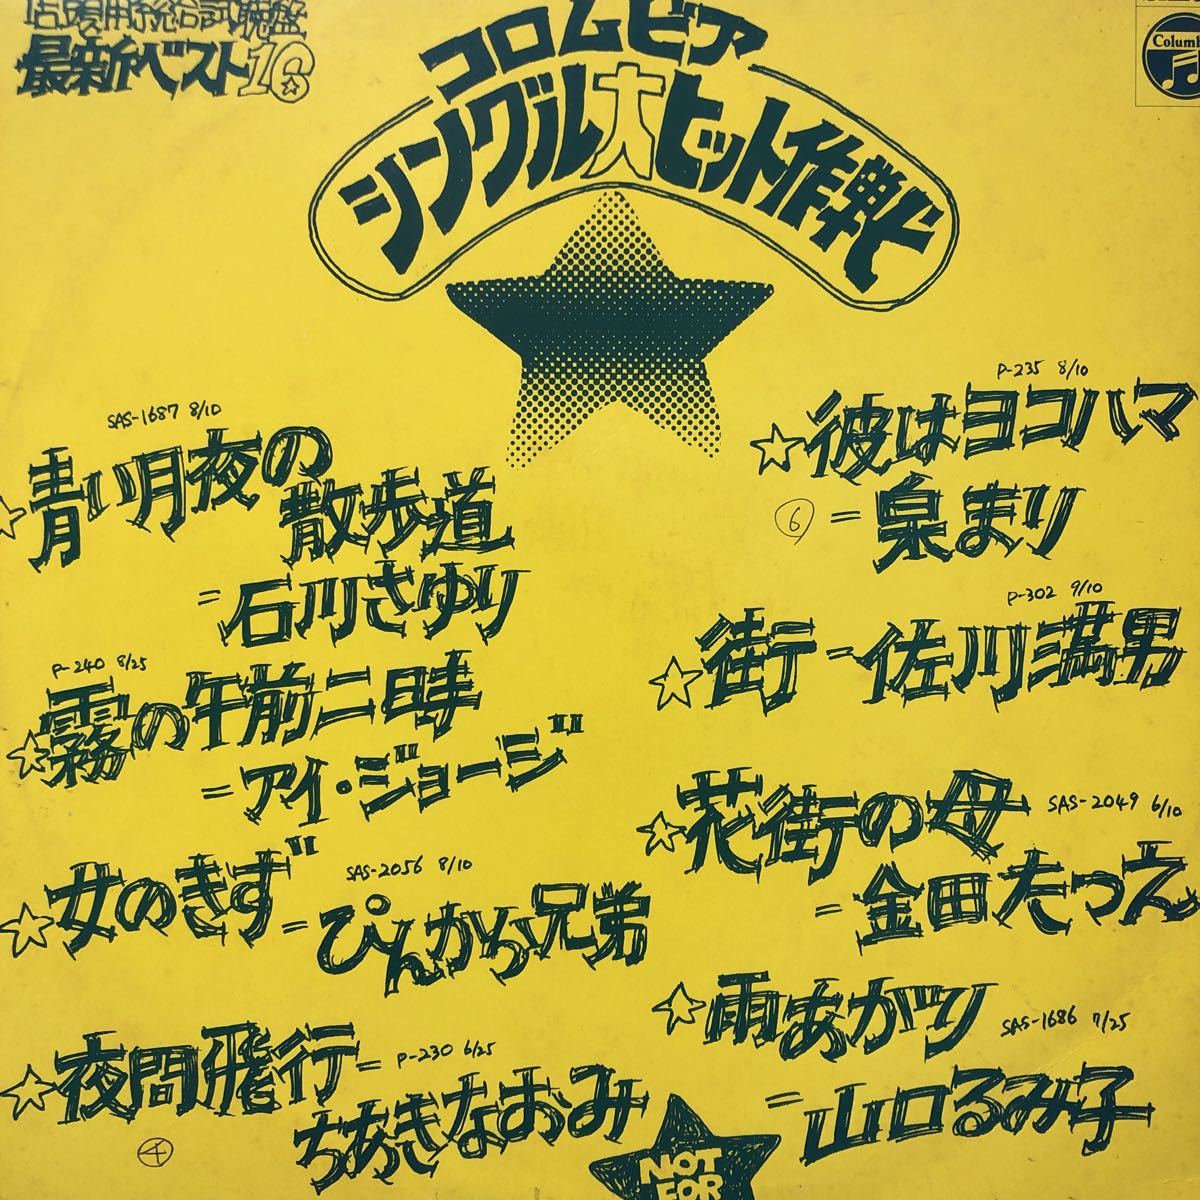 店頭用総合試聴盤
最新ベスト16
コロムビア
シングル大ヒット作戦
Columb
SAS-1687 8/10
青い月夜の
散歩道
=石川さゆり
P-240 8/25
☆霧の午前二時
=アイ・ジョージ
☆女のきず=ぴんから兄弟
SAS-2056 8/10
☆夜間飛行=
P-230 6/25
ちあきなおみ
④
P-235 8/10
☆彼はヨコハマ
⑥ =泉まり
P-302 9/10
☆街=佐川満男
☆花街の母
SAS-2049 6/10
=金田たつえ
☆雨あがり
SAS-1686 7/25
=山口るみ子
NOT
FOR